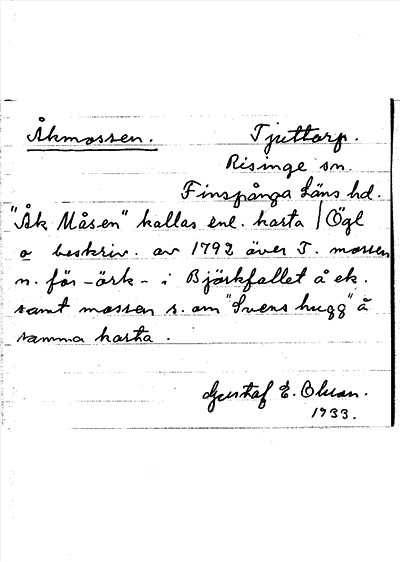 Åkmossen. Tjuttorp.
Risinge sn.
Finspånga Läns hd.
"Åk Måsen" kallas enl. karta / Ögl
o beskriv. av 1792 över T. mossen
n. för -örk- i Björkfallet å ek.
samt mossen s. om "Svens hugg" å
samma karta.
Gustaf E. Olsson.
1933.